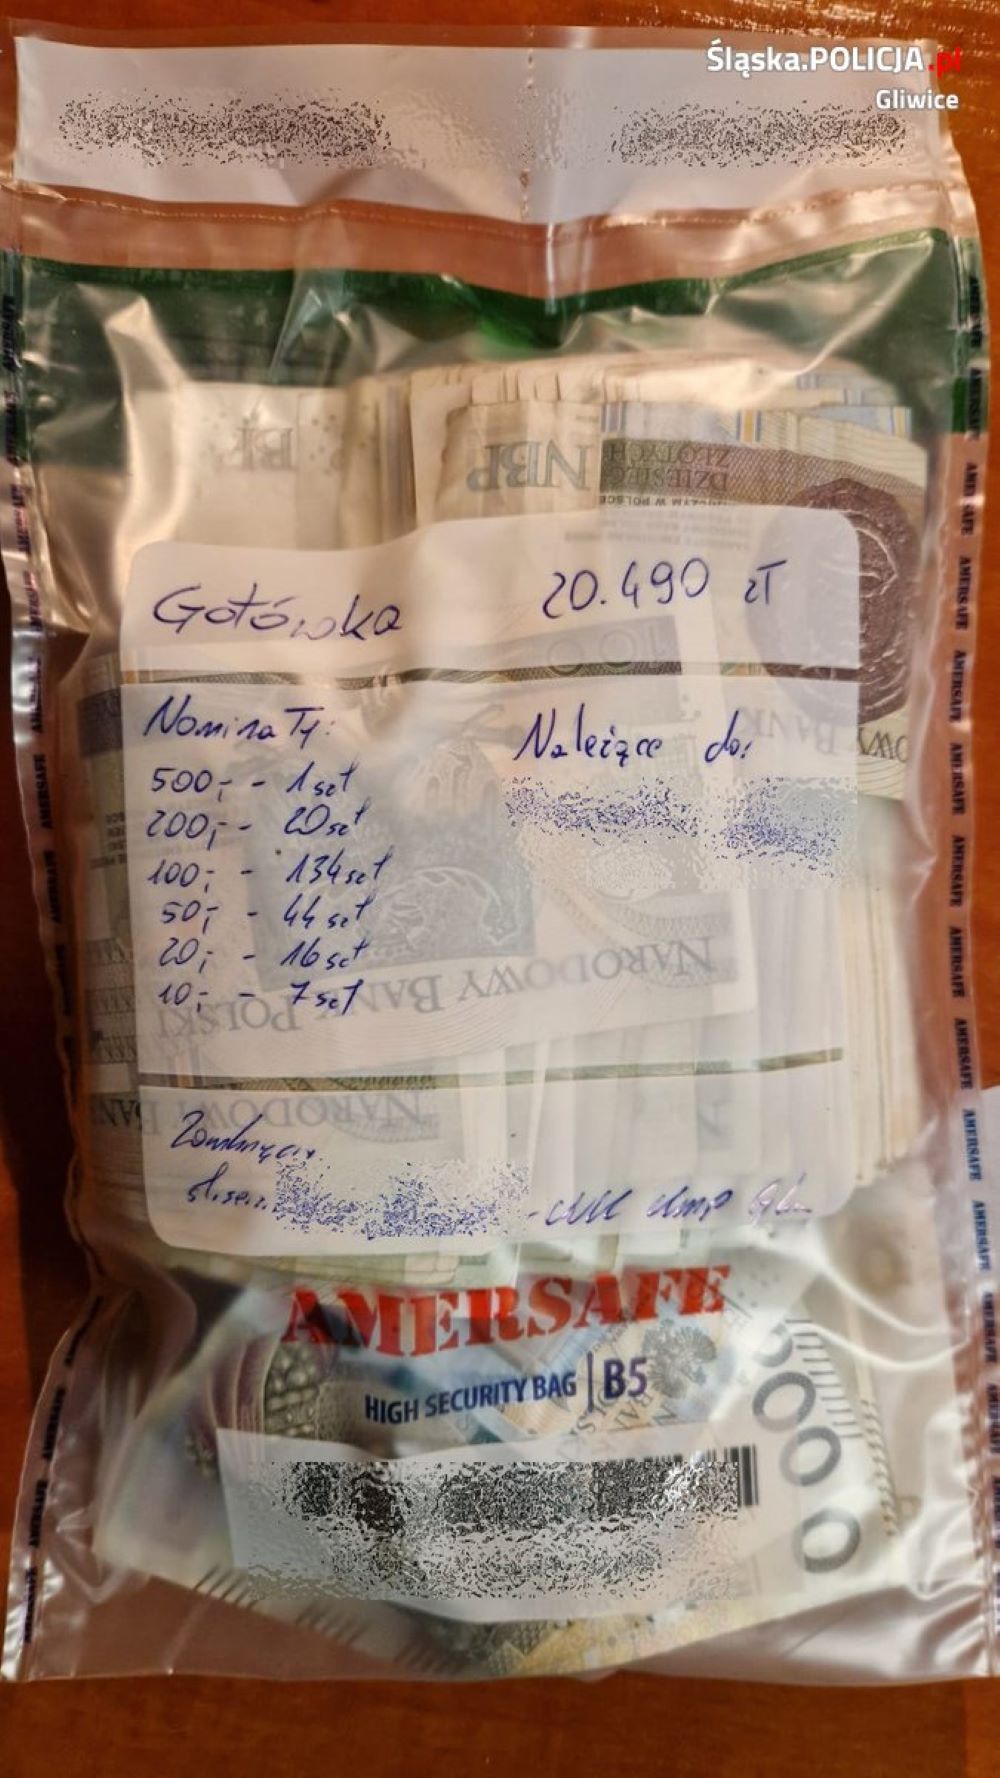 Śląska.POLICJA.pl
Gliwice
NBP
DZIESIĘĆ
ZŁOTYCH
Gotówka 20.490 zł
Nominały: Należące do:
500,- - 1 szt
200,- - 20 szt
100,- - 134 szt
50,- - 44 szt
20,- - 16 szt
10,- - 7 szt
NARODOWY BANK POLSKI
AMERSAFE
HIGH SECURITY BAG | B5
500
AMERSAFE